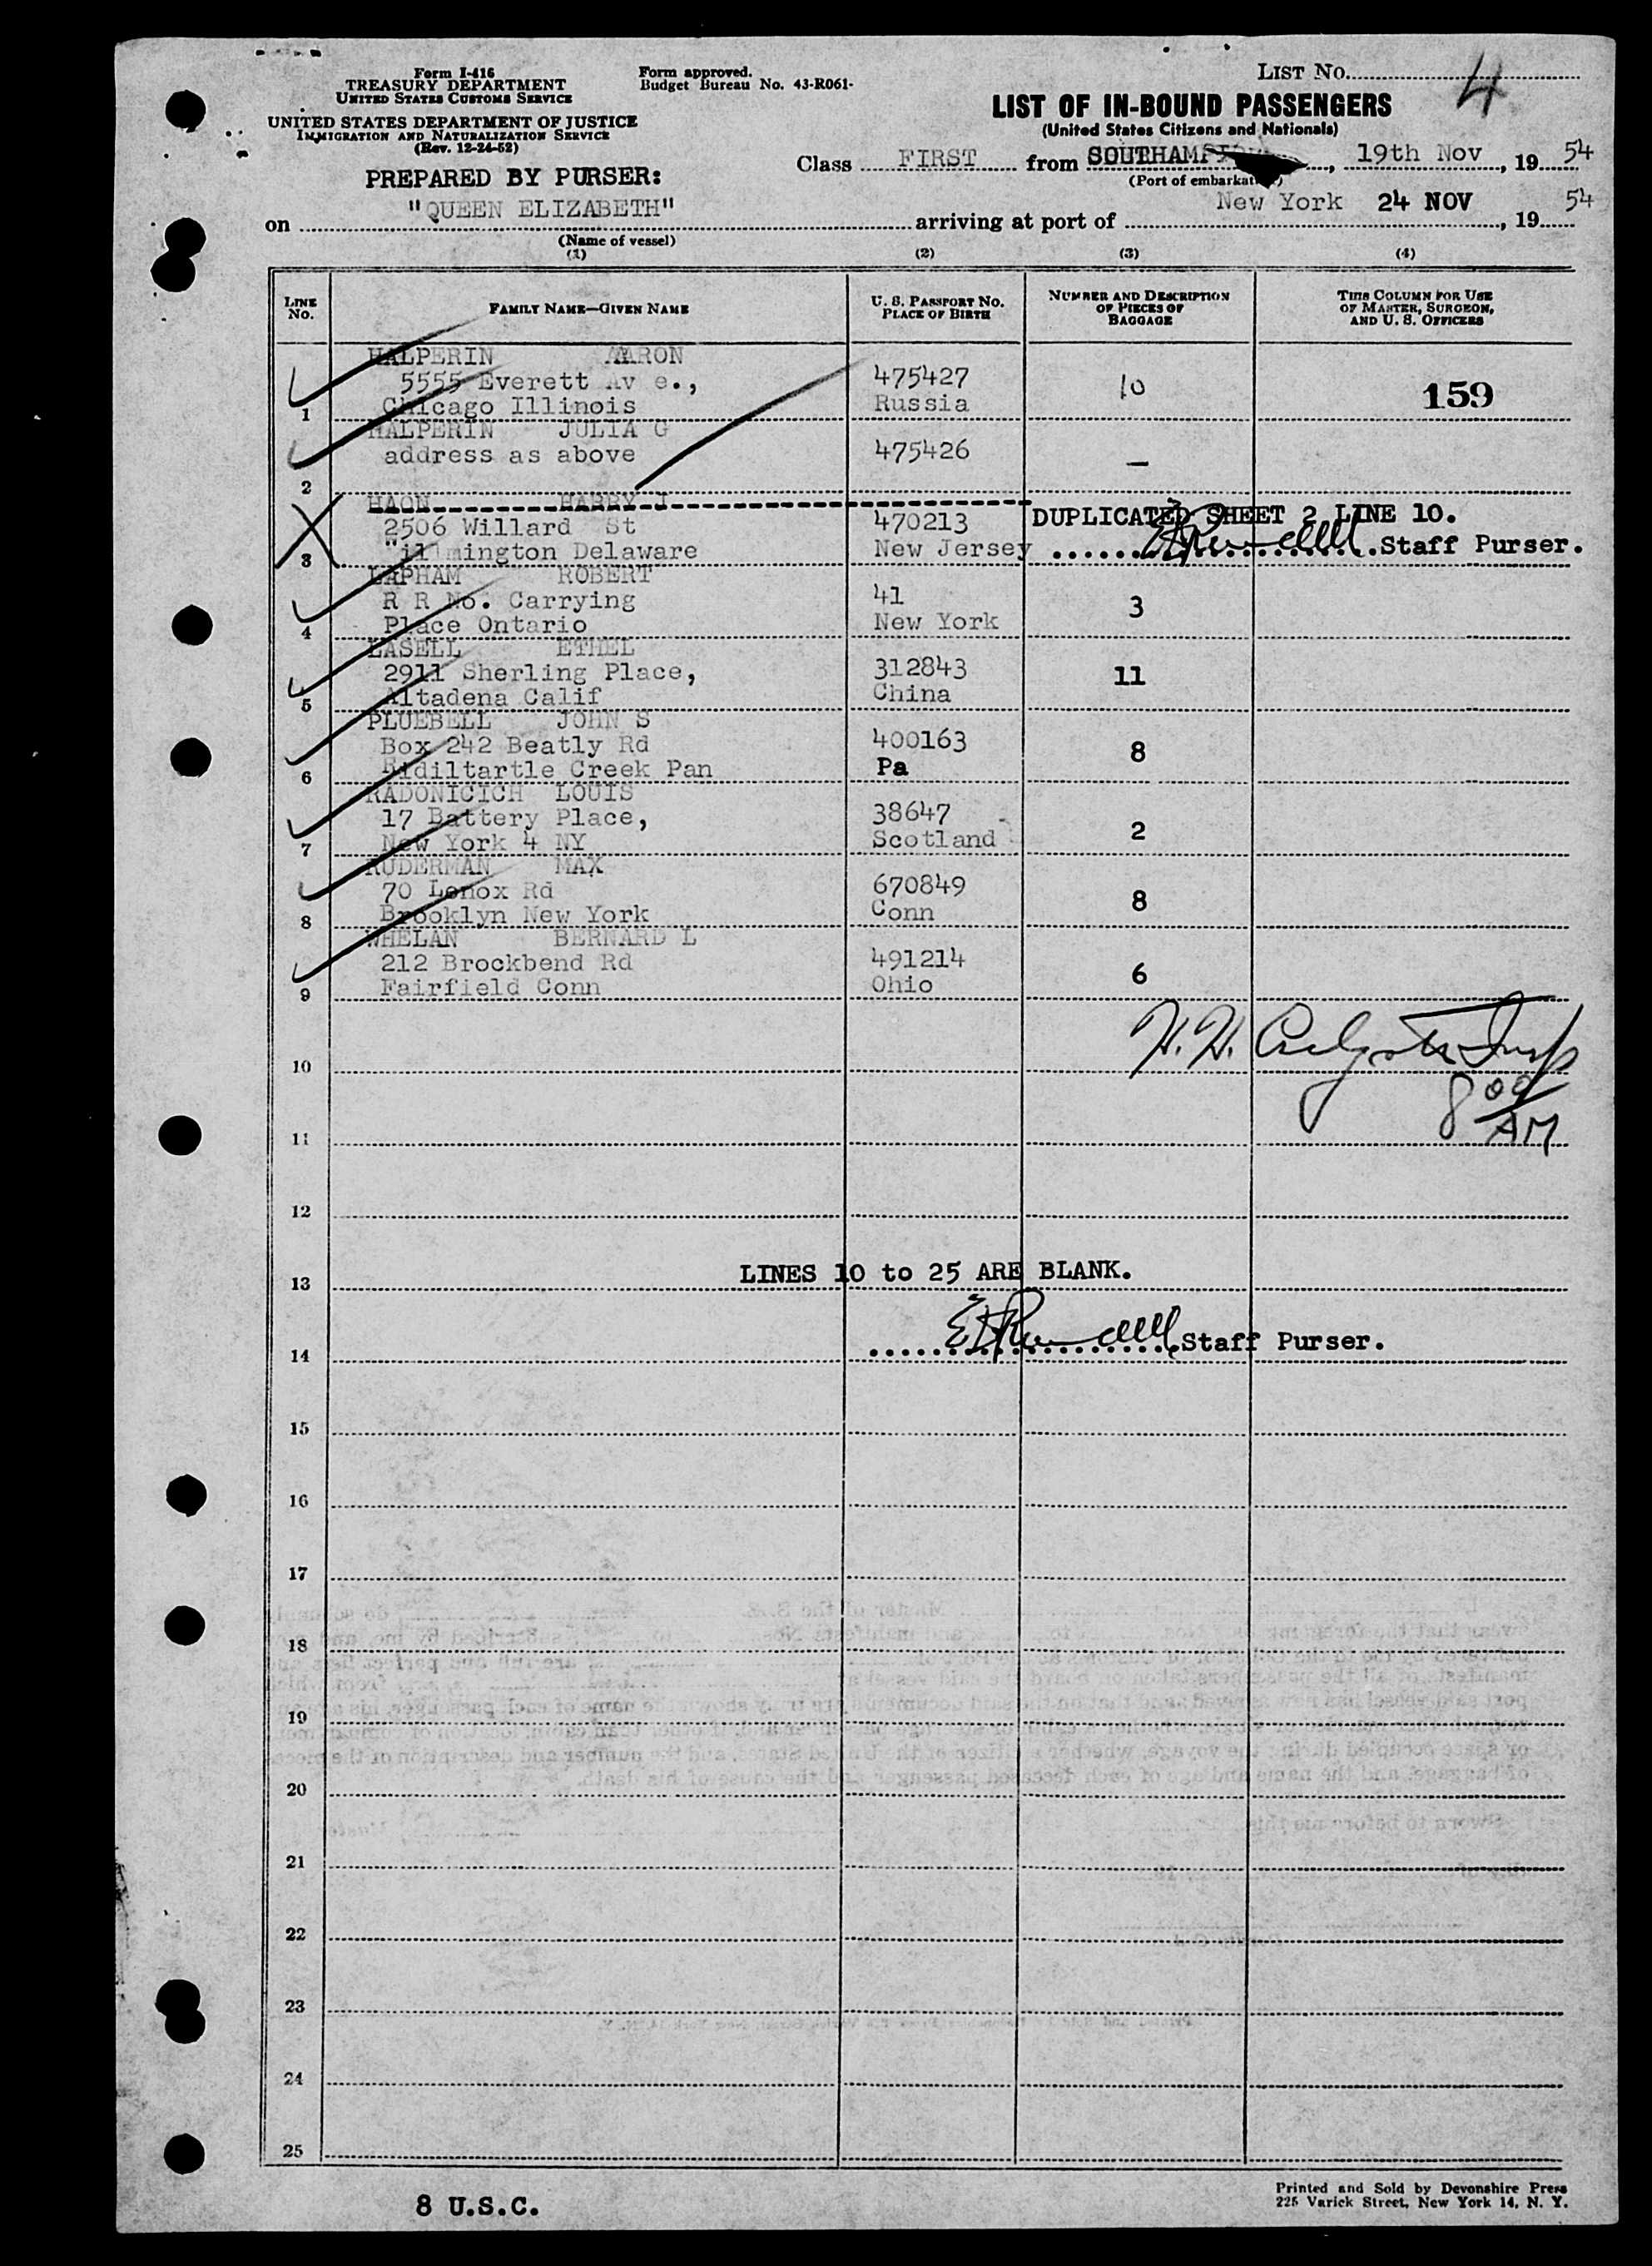 Form I-416
TREASURY DEPARTMENT
UNITED STATES CUSTOMS SERVICE
UNITED STATES DEPARTMENT OF JUSTICE
IMMIGRATION AND NATURALIZATION SERVICE
(Rev. 12-24-52)
Form approved.
Budget Bureau No. 43-R061-
LIST NO. 4
LIST OF IN-BOUND PASSENGERS
(United States Citizens and Nationals)
Class FIRST from SOUTHAMPTON, 19th Nov, 19 54
(Port of embarkation)
PREPARED BY PURSER:
on "QUEEN ELIZABETH" arriving at port of New York 24 NOV, 19 54
(Name of vessel)
(1) (2) (3) (4)
LINE NO. FAMILY NAME—GIVEN NAME U. S. PASSPORT NO. PLACE OF BIRTH NUMBER AND DESCRIPTION OF PIECES OF BAGGAGE THIS COLUMN FOR USE OF MASTER, SURGEON, AND U. S. OFFICERS
HALPERIN AARON
5555 Everett Av e., 475427 10 159
1 Chicago Illinois Russia
HALPERIN JULIA G
address as above 475426 —
2
HAON HARRY J
2506 Willard St 470213 DUPLICATED SHEET 2 LINE 10.
3 "il mington Delaware New Jersey Staff Purser.
LAPHAM ROBERT
R R No. Carrying 41 3
4 Place Ontario New York
LASELL ETHEL
2911 Sherling Place, 312843 11
5 Altadena Calif China
PLUEBELL JOHN S
Box 242 Beatly Rd 400163 8
6 Ridiltartle Creek Pan Pa
RADONICICH LOUIS
17 Battery Place, 38647 2
7 New York 4 NY Scotland
RUDERMAN MAX
70 Lenox Rd 670849 8
8 Brooklyn New York Conn
WHELAN BERNARD L
212 Brockbend Rd 491214 6
9 Fairfield Conn Ohio
H. H.
10
8 00 AM
11
12
LINES 10 to 25 ARE BLANK.
13
Staff Purser.
14
15
16
17
18
19
20
21
22
23
24
25
8 U.S.C.
Printed and Sold by Devonshire Press
225 Varick Street, New York 14, N. Y.